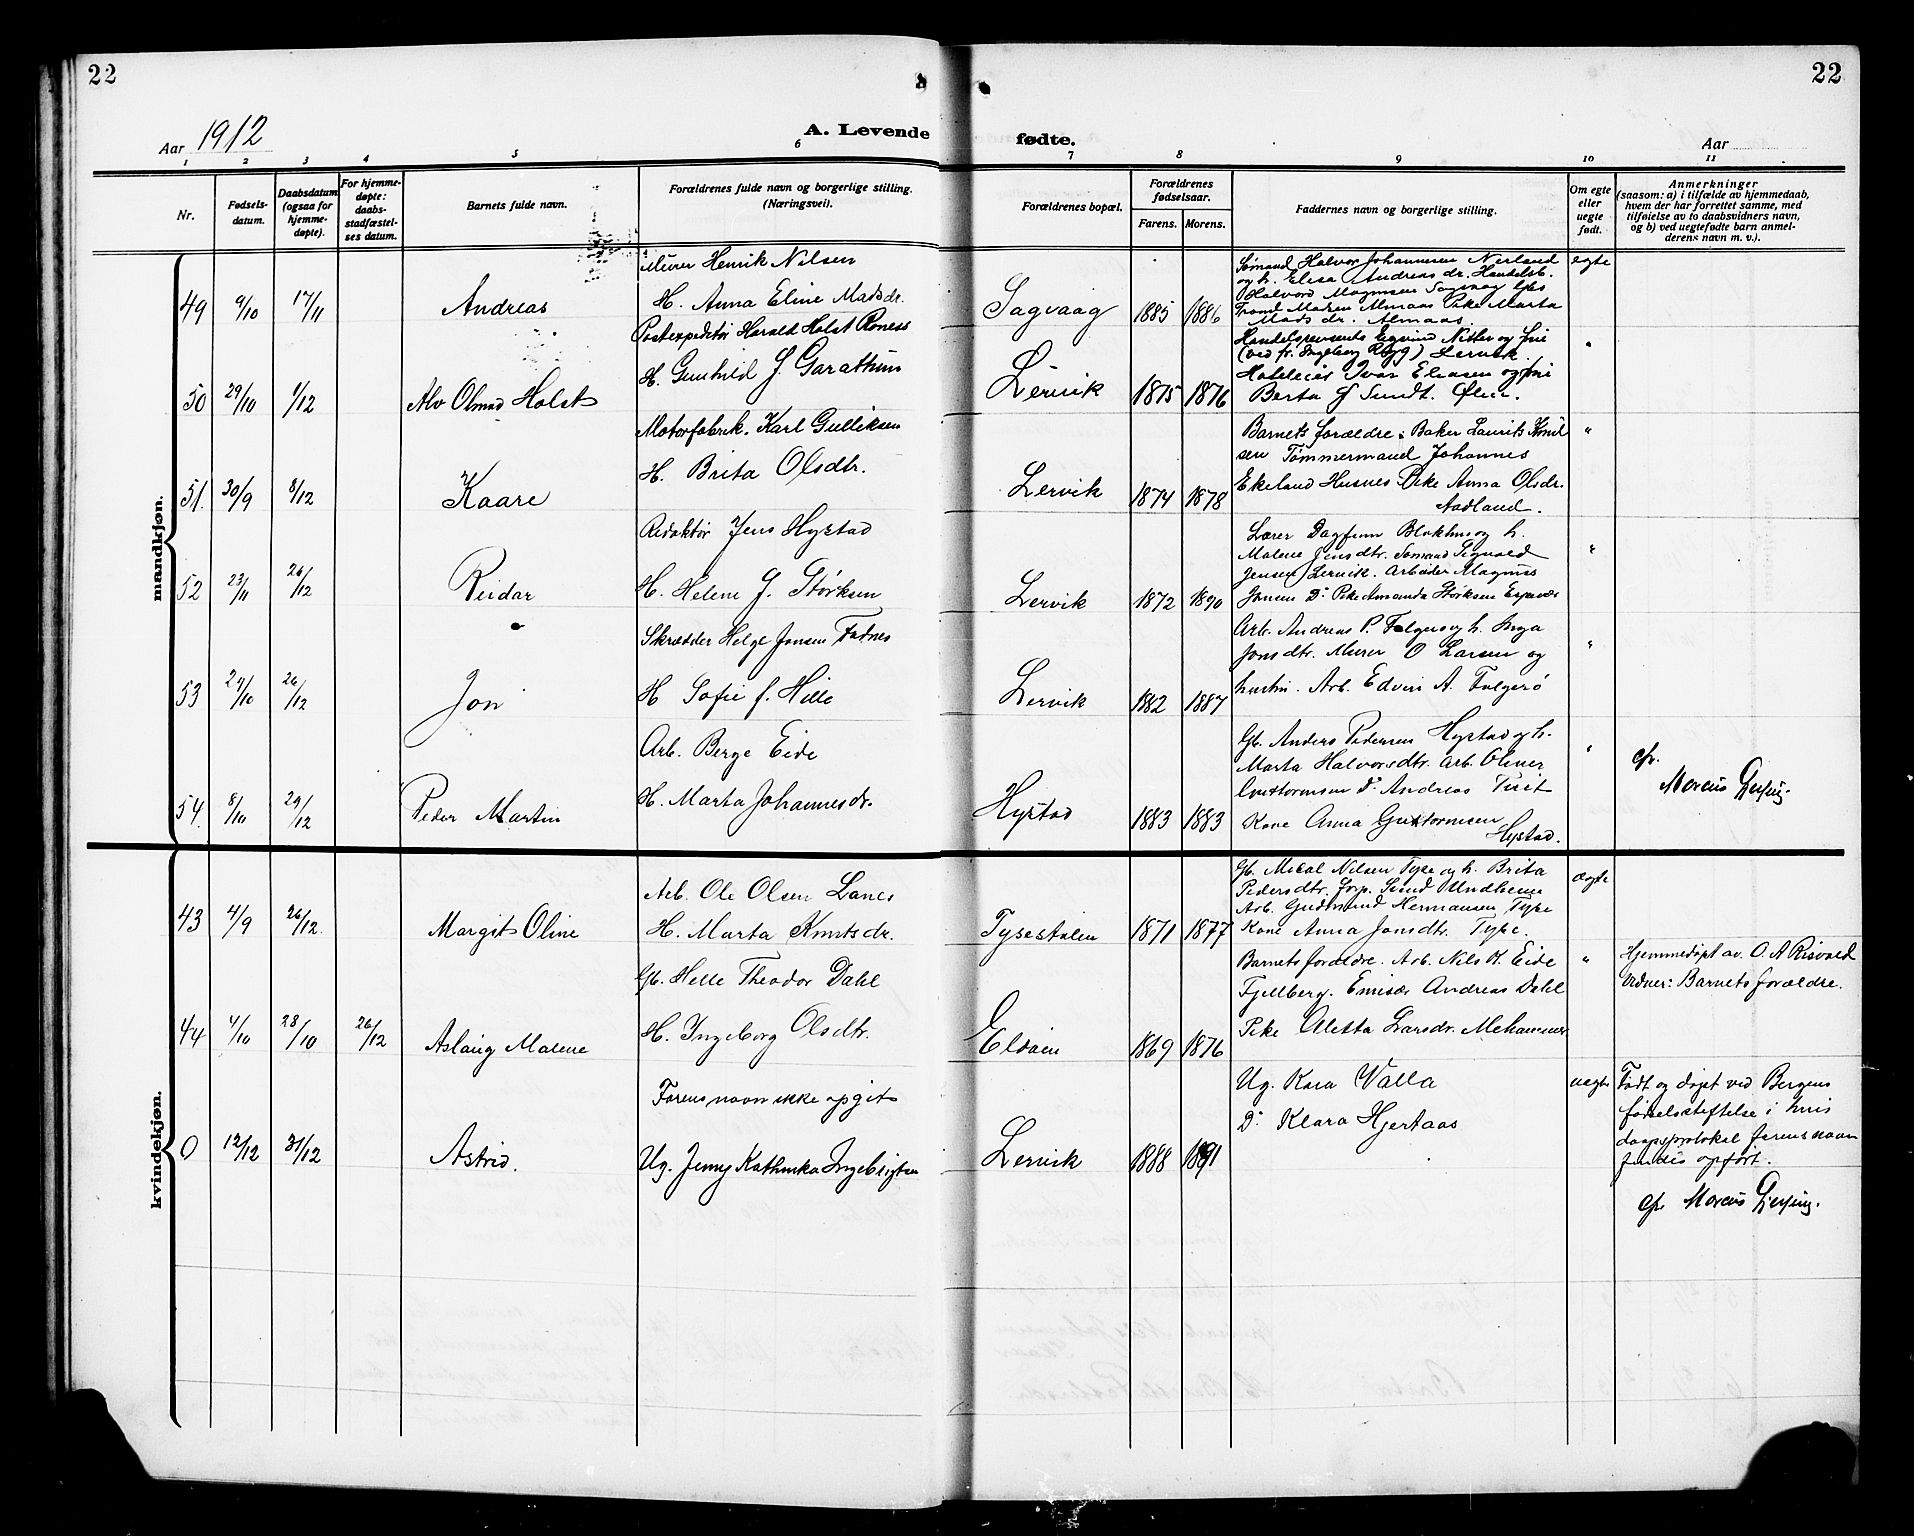 22
22
Aar 1912
A. Levende
fødte.
Aar
1 2 3 4 5 6 7 8 9 10 11
Nr.
Fødsels-
datum.
Daabsdatum
(ogsaa for
hjemme-
døpte).
For hjemme-
døpte:
daabs-
stadfæstel-
ses datum.
Barnets fulde navn.
Forældrenes fulde navn og borgerlige stilling.
(Næringsvei).
Forældrenes bopæl.
Forældrenes
fødselsaar.
Farens. Morens.
Faddernes navn og borgerlige stilling.
Om egte
eller
uegte
født.
Anmerkninger
(saasom: a) i tilfælde av hjemmedaab,
hvem der har forrettet samme, med
tilføielse av to daabsvidners navn,
og b) ved uegtefødte barn anmel-
derens navn m. v.).
mandkjøn.
49 9/10 17/11 Andreas
Murer Henrik Nilsen
H. Anna Eline Madsdr.
Sagvaag 1885 1886
Sømand Halvor Johannesen Nerland
og h. Elisa Andreasdr. Handelsb.
Halvord Magnusen Sagvaag Gbs
Trond Madsen Almaas Pike Marta
Madsdr. Almaas.
egte
50 29/10 1/12 Alv Olmad Holst
Postexpeditør Harald Holst Roness
H. Gunhild f. Garathun
Lervik 1875 1876
(ved fr. Ingeborg Rygg) Lervik.
Hoteleier Ivar Eliasen og frue
Berta f Sundt. Ølen.
"
51. 30/9 8/12 Kaare
Motorfabrik. Karl Gulliksen
H. Brita Olsdtr.
Lervik 1874 1878
Barnets forældre; Baker Laurits Knut
sen Tømmermand Johannes
Ekeland Husnes Pike Anna Olsdr.
Aadland.
"
52 23/11 26/12 Reidar
Redaktør Jens Hystad
H. Helene f. Størksen
Lervik 1872 1890
Lærer Dagfinn Blokhus og h.
Malene Jensdtr. Sømand Sigvald
Jensen Lervik. Arbeider Magnus
Jensen Do Pike Amanda Størksen Espevær
"
53 27/10 26/12 Jon
Skrædder Helge Jonsen Fadnes
H Sofie f. Hille
Lervik 1882 1887
Arb. Andreas P. Følgerø og h. Inga
Jonsdtr. Murer O Larsen og
hustru. Arb. Edvin A. Følgerø
"
54. 8/10 29/12 Peder Martin
Arb. Berge Eide
H. Marta Johannesdr.
Hystad 1883 1883
Gb. Anders Pedersen Hystad og h.
Marta Halvorsdtr. Arb. Oliner
Guttormsen Do Andreas Tveit
Kone Anna Guttormsen
Hystad.
"
cfr.
Marcus Gjessing.
kvindekjøn.
43 4/9 26/12. Margit Oline
Arb. Ole Olsen Lanes
H. Marta Knutsdr.
Tysestølen 1871 1877
Gb. Mikal Nilsen Tyse og h. Brita
Pedersdtr. Undheim
Arb. Gudmund Hermansen Tyse
Kone Anna Jonsdtr. Tyse.
ægte
44 4/10 28/10 26/12 Aslaug Malene
Gb. Helle Theodor Dahl
H. Ingeborg Olsdtr.
Eldøen 1869 1876
Barnets forældre. Arb. Nils K. Eide
Fjellberg. Emisær Andreas Dahl
Pike Aletta Larsdr. Mehammer
"
Hjemmedøpt av O. A Risvold
Vidner: Barnets forældre.
0 12/12 31/12 Astrid.
Farens navn ikke opgit
Ug. Jenny Kathinka Ingebrigtsen
Lervik 1888 1891
Ug. Kara Valla
Do Klara Hjertaas
uegte
Født og døpt ved Bergens
fødselsstiftelse i hvis
daapsprotokol farens navn
findes opført.
cfr Marcus Gjessing.